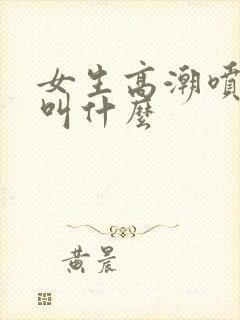 女生高潮噴
叫什麼
黃晨